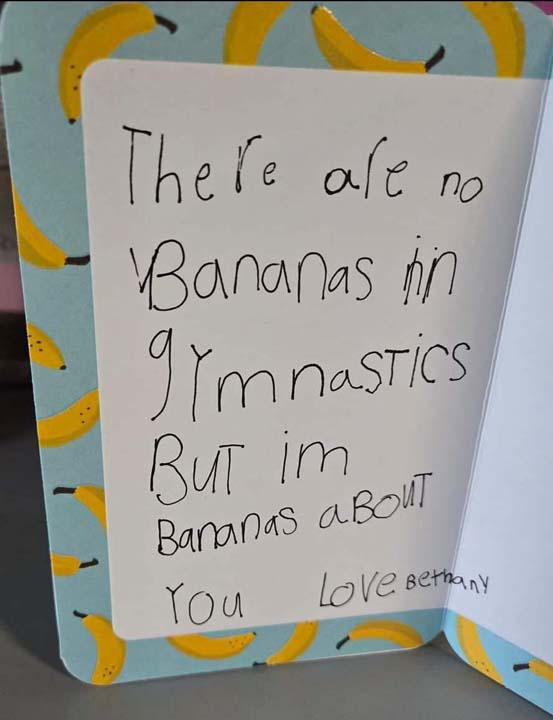 There are no
Bananas in
gymnastics
BUT im
Bananas aBOUT
You Love Bethany